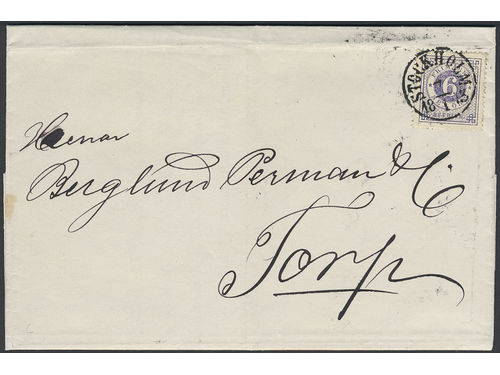 STOCKHOLM
6
Herrar
Berglund Perman & C
Torp